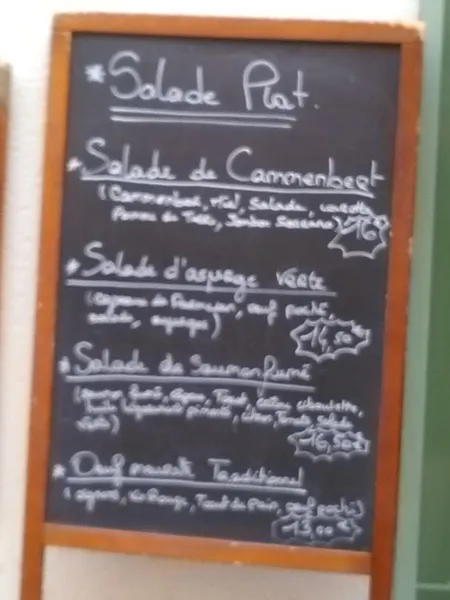 * Salade Plat.
* Salade de Cammenbert
(Cammenbert, miel, Salade, carotte,
Pomme de Terre, Jambon Serrano)
16€
* Salade d'asperge verte
(copeaux de Parmesan, oeuf poché,
salade, asperges)
14,50€
* Salade de Saumon fumé
fumé, Toast,
citron, Tomate, Salade
verte)
16,50€
* Oeuf meurette Traditionnel
(oignons, Vin Rouge, Toast de Pain, oeuf poché)
13,00€